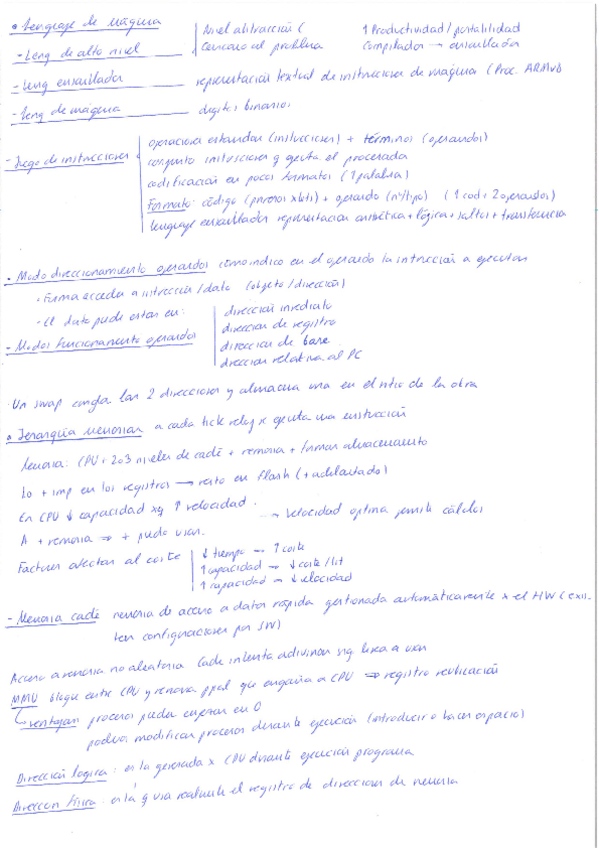 • Lenguaje de máquina
- Leng de alto nivel | Nivel abstracción ( ↑ Productividad/portabilidad
Cercano al problema Compilador → ensamblador
- Leng ensamblador representación textual de instrucciones de máquina (Proc. ARMv8
- Leng de máquina digitos binarios
- Juego de instrucciones | operaciones estandar (instrucciones) + términos (operandos)
conjunto instrucciones q ejecuta el procesador
codificación en pocos formatos (1 palabra)
Formato: código (primeros xbits) + operando (nº/tipo) (1 cod + 2 operandos)
lenguaje ensamblador representación aritmética + lógica + saltos + transferencia
• Modo direccionamiento operandos como indico en el operando la intrucción a ejecutar
· Forma acceder a instrucción/dato (objeto/dirección)
· El dato puede estar en:
- Modos funcionamiento operandos | dirección inmediato
dirección de registro
dirección de base
dirección relativa al PC
Un swap las 2 direcciones y almacena una en el sitio de la otra
• Jerarquía memorias a cada tick reloj x ejecuta una instrucción
Memoria: CPU + 2o3 niveles de caché + memoria + formas almacenamiento
Lo + imp en los registros → resto en flash (+ adelantado)
En CPU ↓ capacidad xq ↑ velocidad. → Velocidad optima permite cálculos
A + memoria → + puedo usar.
Factores afectan al coste | ↓ tiempo → ↑ coste
↑ capacidad → ↓ coste/bit
↑ capacidad → ↓ velocidad
- Memoria caché memoria de acceso a datos rápida gestionada automáticamente x el HW (exis.
ten configuraciones por SW)
Acceso a memoria no aleatoria Caché intenta adivinar sig linea a usar
MMU bloque entre CPU y memoria ppal que engaña a CPU → registro reubicación
ventajas procesos puedan empezar en 0
podemos modificar procesos durante ejecución (introducir o hacer espacio)
Dirección lógica: es la generada x CPU durante ejecución programa
Dirección física: es la q usa realmente el registro de direcciones de memoria